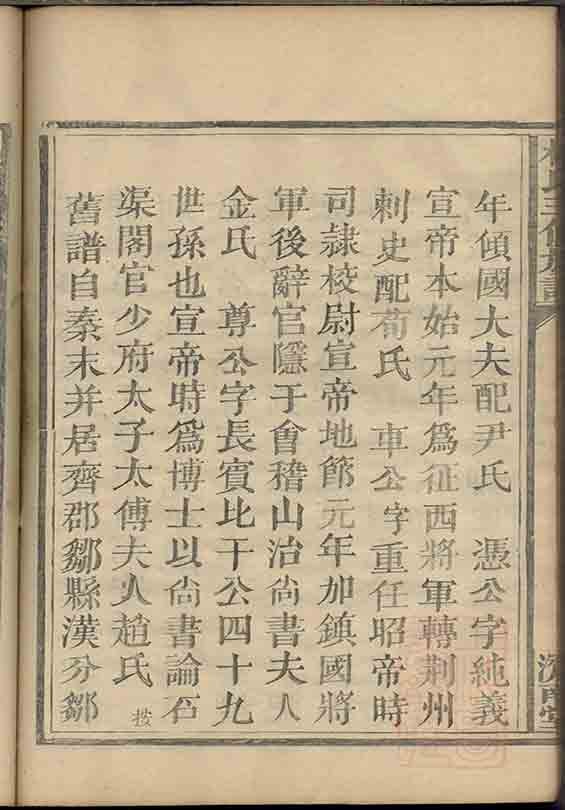 年傾國大夫配尹氏　憑公字純義
宣帝本始元年爲征西將軍轉荆州
刺史配荀氏　車公字重任昭帝時
司隸校尉宣帝地節元年加鎮國將
軍後辭官隱于會稽山治尚書夫人
金氏　尊公字長賓比干公四十九
世孫也宣帝時爲博士以尚書論石
渠閣官少府太子太傅夫人趙氏　按
舊譜自秦末并居齊郡鄒縣漢分鄒